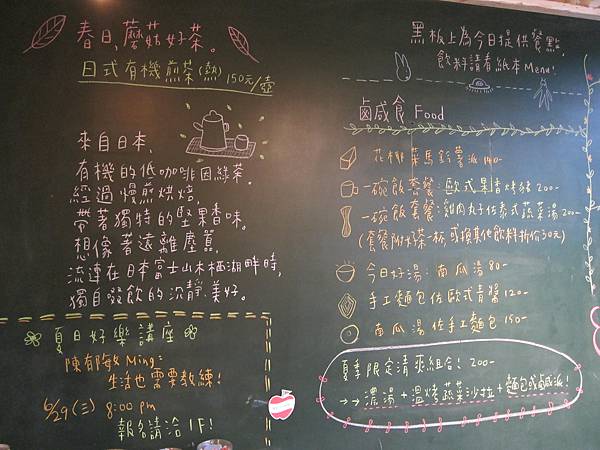 春日、蘑菇好茶。
日式有機煎茶(熱) 150元/壺
來自日本,
有機的低咖啡因綠茶。
經過慢煎烘焙,
帶著獨特的堅果香味。
想像著遠離塵囂,
流連在日本富士山木栖湖畔時,
獨自啜飲的沉靜美好。
夏日好樂講座
陳郁敏 Ming:
生活也需要教練!
6/29 (三) 8:00 pm
報名請洽 1F!
黑板上為今日提供餐點,
飲料請看紙本 Menu!
鹹食 Food
花椰菜馬鈴薯派 140-
一碗飯套餐:歐式果香烤豬 200-
一碗飯套餐:雞肉丸子佐泰式蔬菜湯 200-
(套餐附好茶一杯,或換其他飲料折價30元)
今日好湯:南瓜湯 80-
手工麵包佐歐式青醬 120-
南瓜湯佐手工麵包 150-
夏季限定清爽組合! 200-
→→濃湯+溫烤蔬菜沙拉+麵包或鹹派!